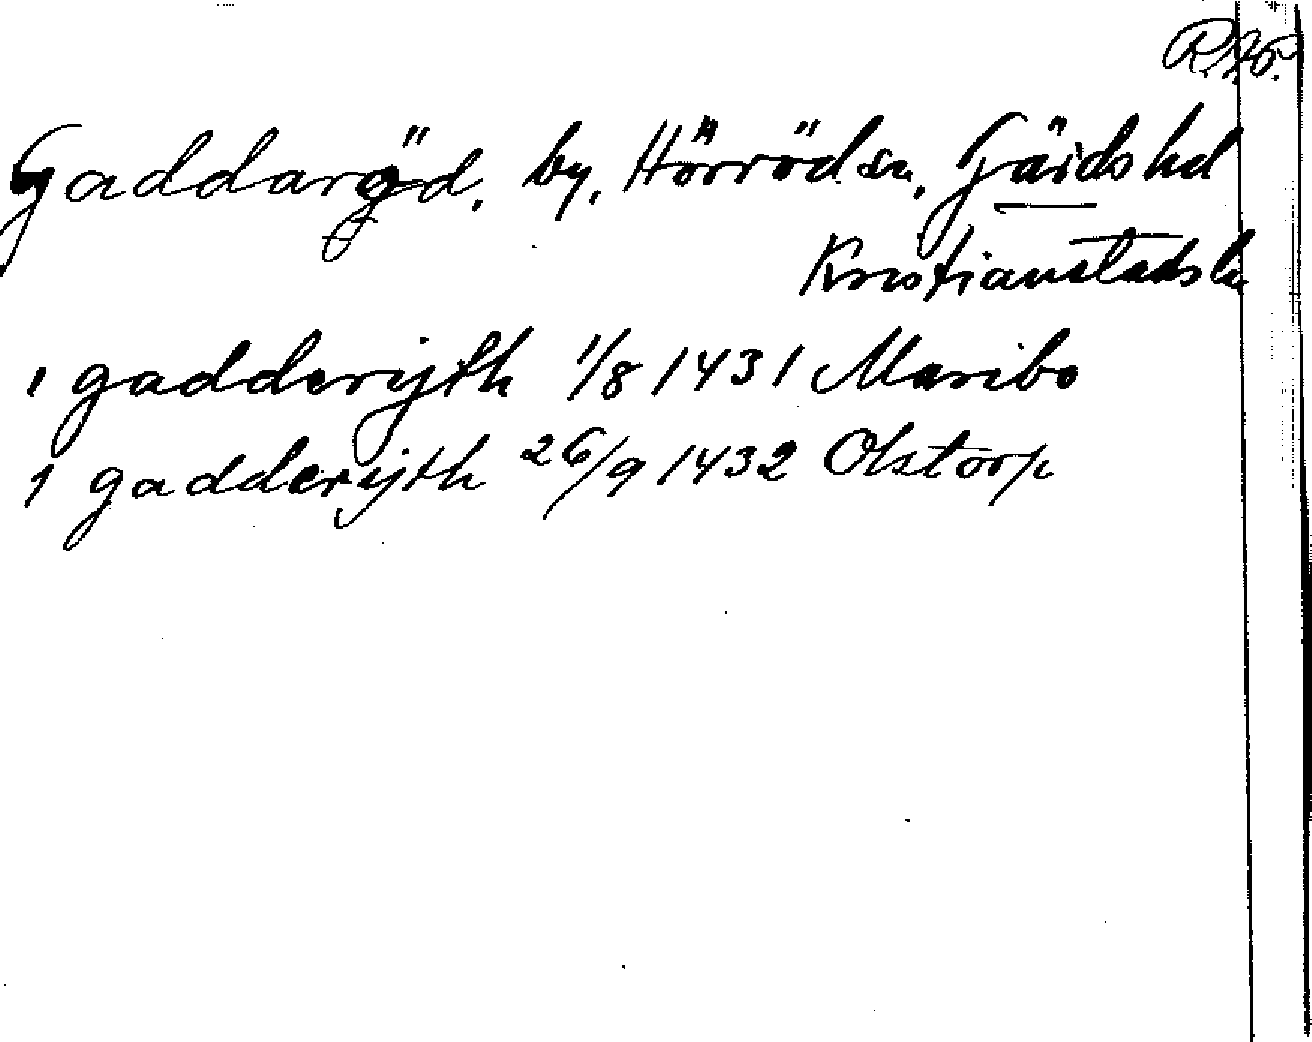 Gaddaröd, by, Hörröd sn, Gärds hd
Kristianstads ln
1 gadderijth 1/8 1431 Maribo
1 gadderijth 26/9 1432 Olstorp